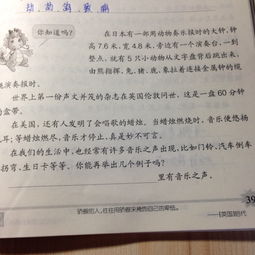 你知道吗?
在日本有一部用动物奏乐报时的大钟,钟
高7.6米,宽4.8米,旁边有一个演奏台,一到
整点,就有5只小动物从文字盘背后跳出来,
由熊指挥,兔、猪、鹿、象拉着连接金属钟的绳
演奏报时。
世界上第一份声文并茂的杂志在英国伦敦问世,这是一盘60分钟
盒带。
在美国,还有人发明了会唱歌的蜡烛。当蜡烛燃烧时,音乐便悠扬
耳;等蜡烛燃尽,音乐才停止,真是妙不可言。
在我们的生活中,也经常有许多音乐之声出现,比如门铃、汽车倒车
拐弯、生日卡等等。你能再举出几个例子吗?
里有音乐之声。
39
骄傲的人,往往用骄傲来掩饰自己的卑怯。